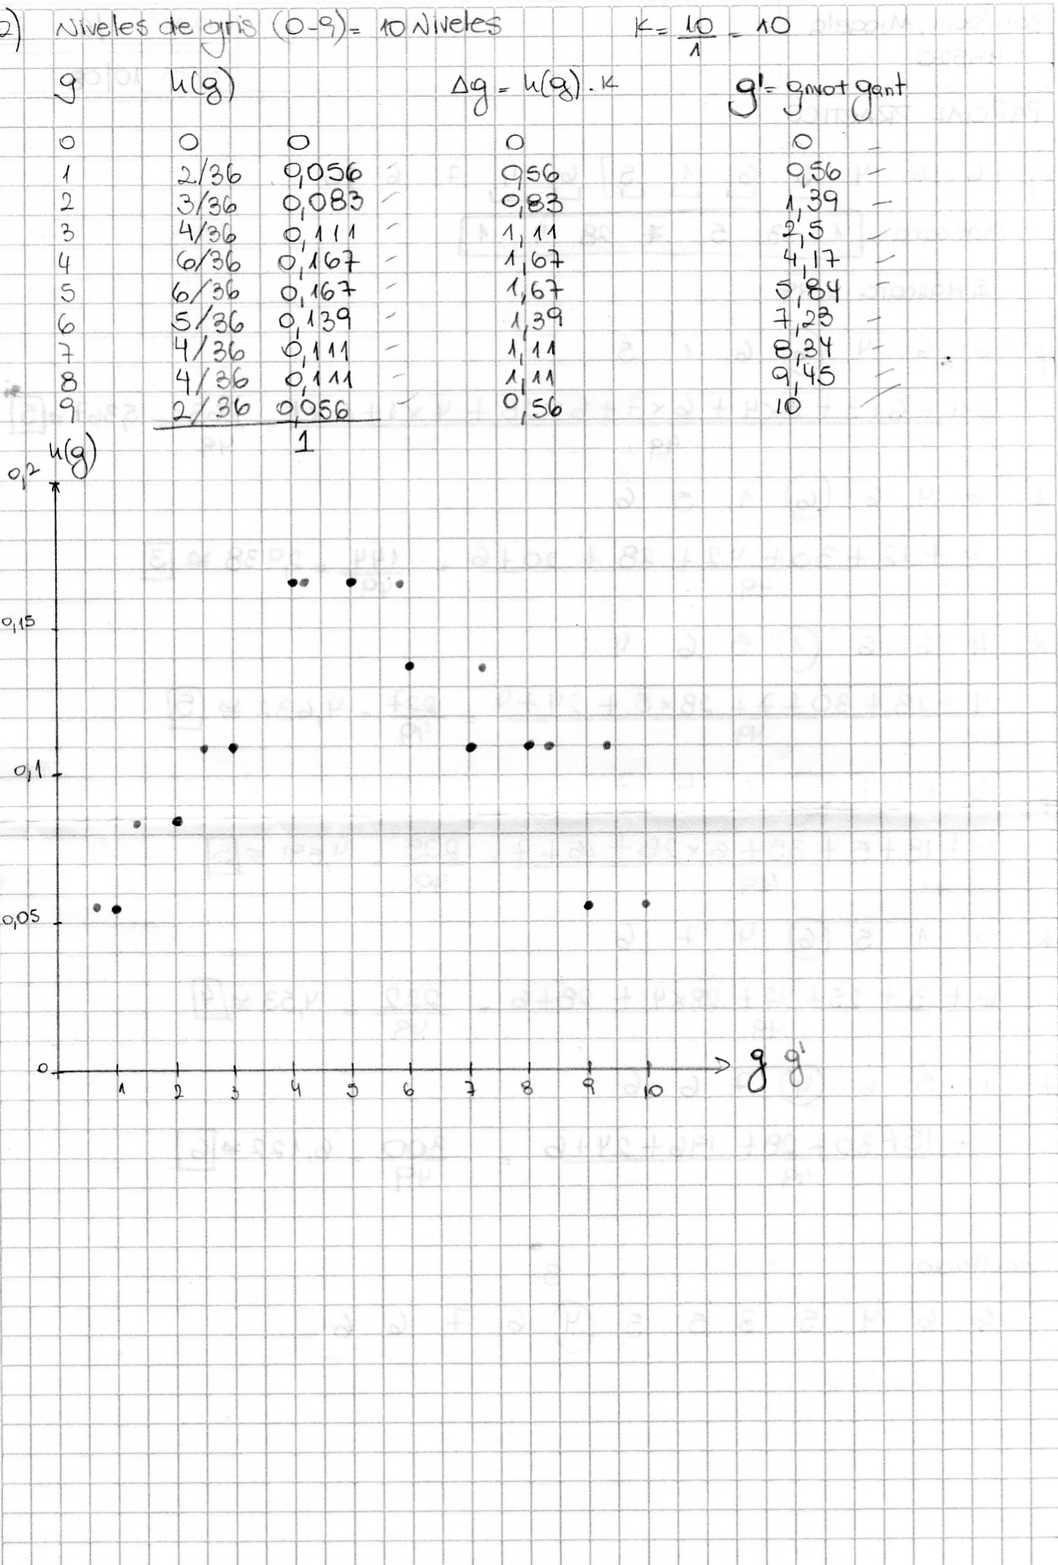 2) Niveles de gris (0-9) = 10 Niveles K = 10/1 = 10
g h(g) Δg = h(g) . K g' = gnvo + gant
0 0 0 0 0 -
1 2/36 0,056 - 0,56 0,56 -
2 3/36 0,083 - 0,83 1,39 -
3 4/36 0,111 - 1,11 2,5 -
4 6/36 0,167 - 1,67 4,17 -
5 6/36 0,167 - 1,67 5,84 -
6 5/36 0,139 - 1,39 7,23 -
7 4/36 0,111 - 1,11 8,34 -
8 4/36 0,111 - 1,11 9,45 -
9 2/36 0,056 - 0,56 10
1
h(g)
0,2
0,15
0,1
0,05
0
1 2 3 4 5 6 7 8 9 10 g g'